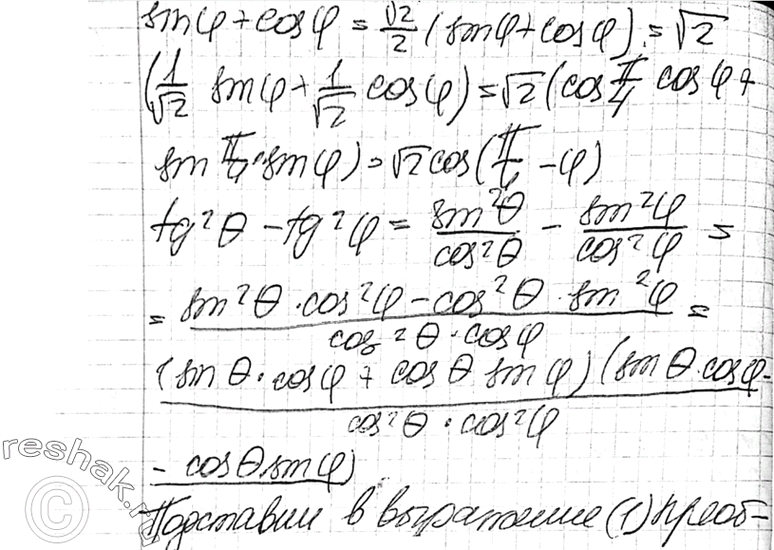 sinφ + cosφ = √2/2 (sinφ + cosφ) = √2
(1/√2 sinφ + 1/√2 cosφ) = √2 (cos π/4 cosφ +
sin π/4 · sinφ) = √2 cos(π/4 - φ)
tg²θ - tg²φ = sin²θ/cos²θ - sin²φ/cos²φ =
= sin²θ · cos²φ - cos²θ · sin²φ / cos²θ · cosφ =
(sinθ · cosφ + cosθ sinφ)(sinθ · cosφ - / cos²θ · cos²φ
- cosθ sinφ)
Подставим в выражение (1) преоб-
reshak.ru
©